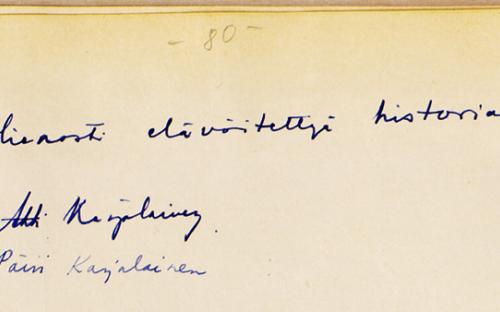 - 80 -
hienosti elävöitettyä historia
Ahti Karjalainen
Päivi Karjalainen